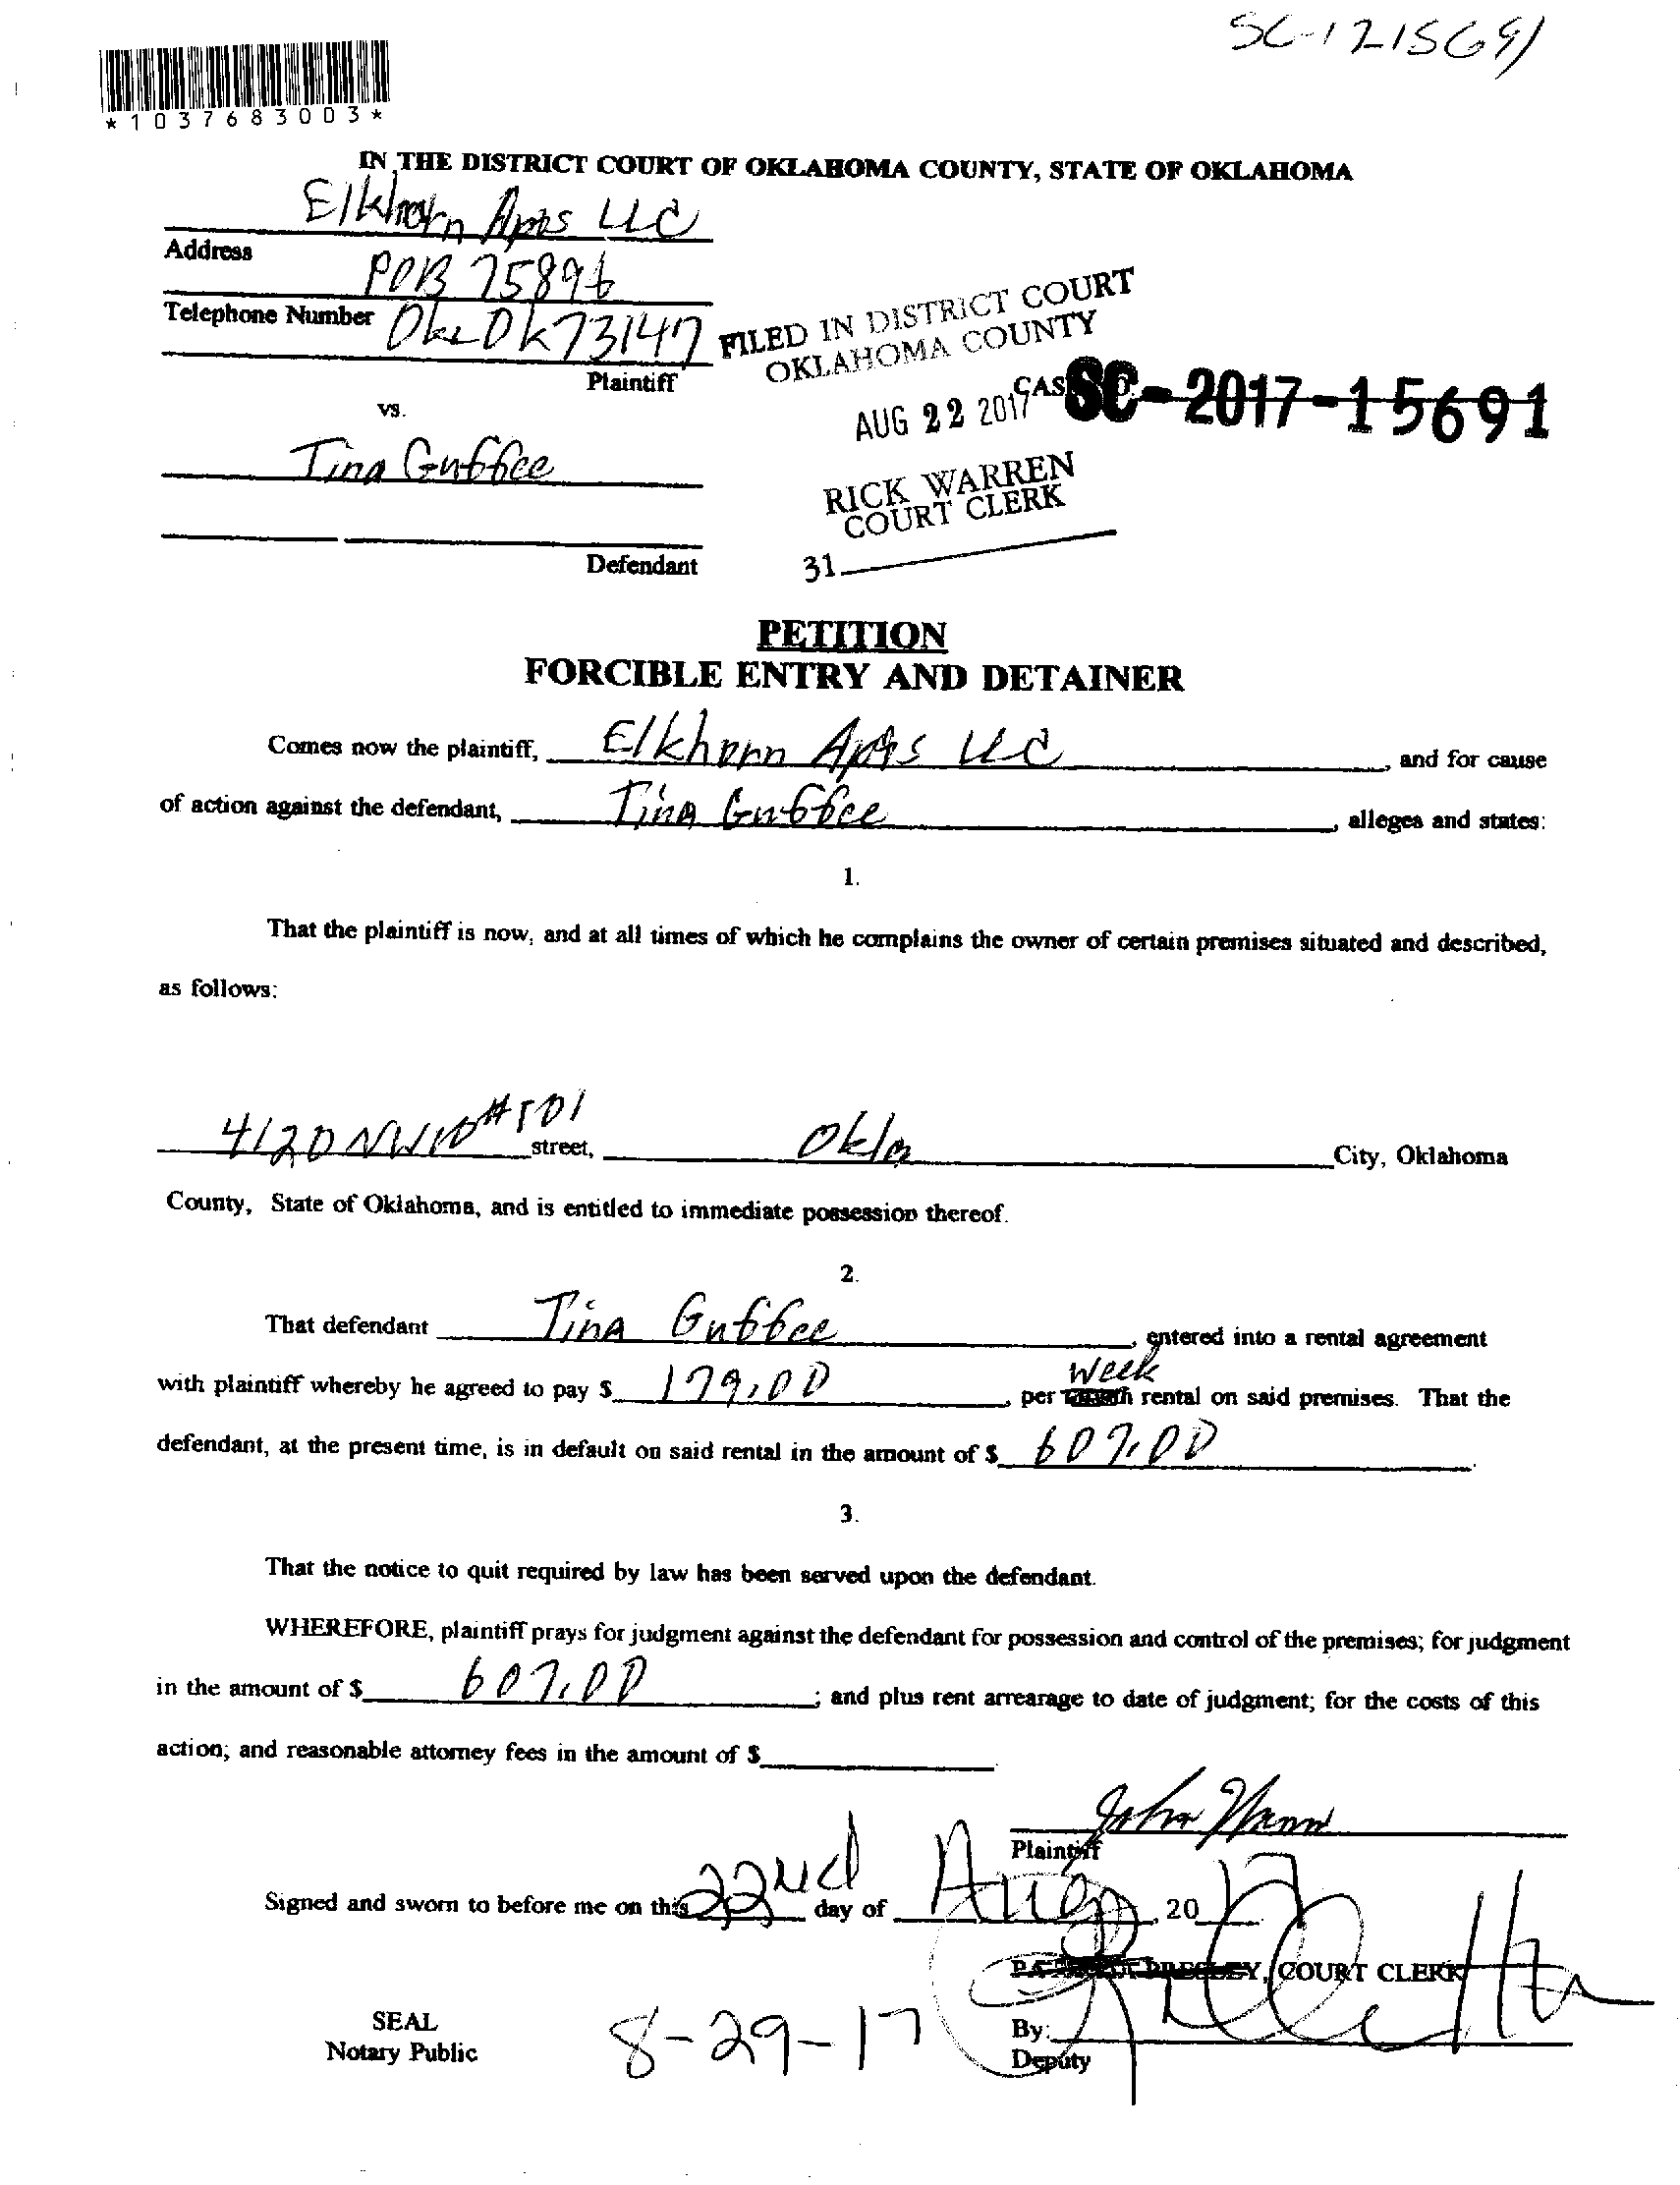 SC-1215691
*1037683003*
IN THE DISTRICT COURT OF OKLAHOMA COUNTY, STATE OF OKLAHOMA
Elkhorn Apts LLC
Address
POB 75896
Telephone Number OKC OK 73147
Plaintiff
FILED IN DISTRICT COURT
OKLAHOMA COUNTY
CAS SC-2017-15691
vs.
AUG 22 2017
Tina Guffee
RICK WARREN
COURT CLERK
Defendant
31
PETITION
FORCIBLE ENTRY AND DETAINER
Comes now the plaintiff, Elkhorn Apts LLC, and for cause
of action against the defendant, Tina Guffee, alleges and states:
1.
That the plaintiff is now, and at all times of which he complains the owner of certain premises situated and described,
as follows:
4120 NW 10 #101 street, Okla City, Oklahoma
County, State of Oklahoma, and is entitled to immediate possession thereof.
2.
That defendant Tina Guffee, entered into a rental agreement
with plaintiff whereby he agreed to pay $ 179.00, per week rental on said premises. That the
defendant, at the present time, is in default on said rental in the amount of $ 607.00.
3.
That the notice to quit required by law has been served upon the defendant.
WHEREFORE, plaintiff prays for judgment against the defendant for possession and control of the premises; for judgment
in the amount of $ 607.00; and plus rent arrearage to date of judgment; for the costs of this
action; and reasonable attorney fees in the amount of $
Plaintiff
Signed and sworn to before me on this 22nd day of Aug, 20 17
COURT CLERK
SEAL
Notary Public
8-29-17
By:
Deputy